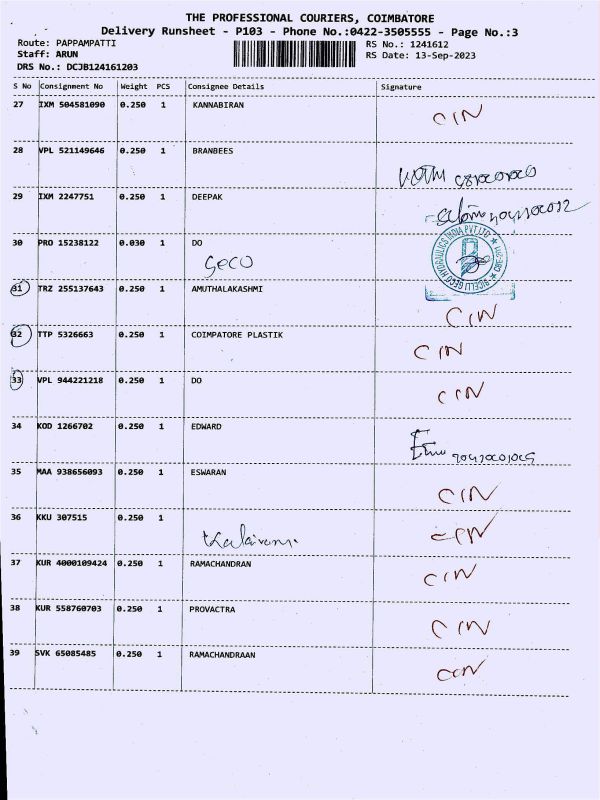 THE PROFESSIONAL COURIERS, COIMBATORE
Delivery Runsheet - P103 - Phone No.:0422-3505555 - Page No.:3
Route: PAPPAMPATTI RS No.: 1241612
Staff: ARUN RS Date: 13-Sep-2023
DRS No.: DCJB124161203
S No Consignment No Weight PCS Consignee Details Signature
27 IXM 504581090 0.250 1 KANNABIRAN CIN
28 VPL 521149646 0.250 1 BRANBEES
29 IXM 2247751 0.250 1 DEEPAK
30 PRO 15238122 0.030 1 DO
Geco
BICELLI GECO HYDRAULICS INDIA PVT LTD
31 TRZ 255137643 0.250 1 AMUTHALAKASHMI CIN
32 TTP 5326663 0.250 1 COIMPATORE PLASTIK CIN
33 VPL 944221218 0.250 1 DO CIN
34 KOD 1266702 0.250 1 EDWARD
35 MAA 938656093 0.250 1 ESWARAN CIN
36 KKU 307515 0.250 1 CIN
37 KUR 4000109424 0.250 1 RAMACHANDRAN CIN
38 KUR 558760703 0.250 1 PROVACTRA CIN
39 SVK 65085485 0.250 1 RAMACHANDRAAN CIN